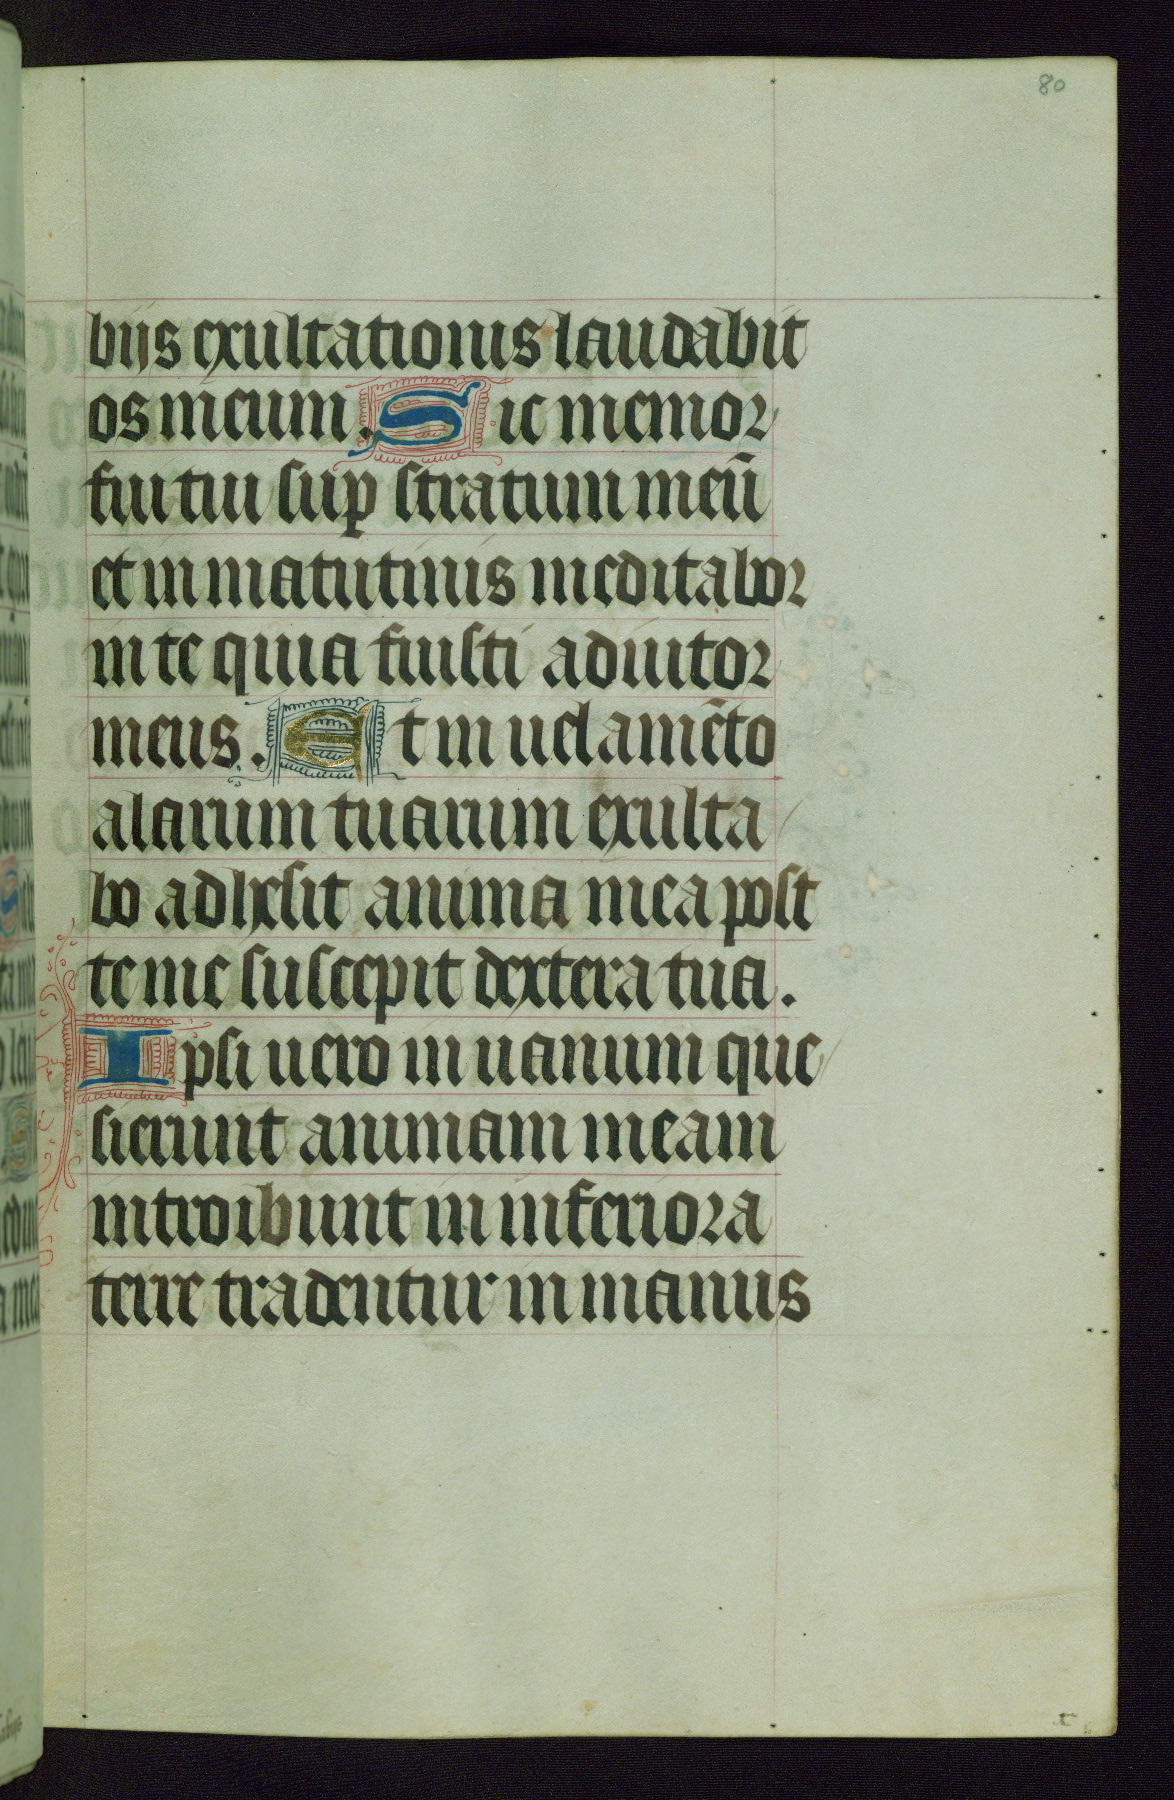 80
biis exultationis laudabit
os meum. Sic memor
fui tui sup stratum meū
et in matutinis meditabor
in te quia fuisti adiutor
meus. Et in uelamēto
alarum tuarum exulta
bo adhesit anima mea post
te me suscepit dextera tua.
Ipsi uero in uanum que
sierunt animam meam
introibunt in inferiora
terre tradentur in manus